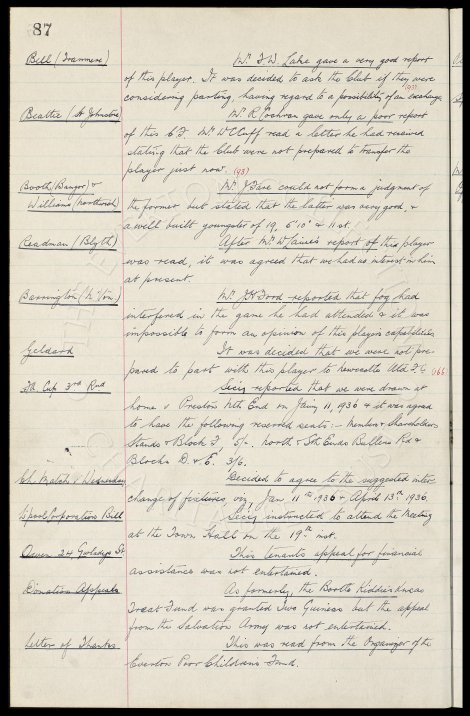 87
Bill (Tranmere) Mr. J. W. Lake gave a very good report
of this player. It was decided to ask the Club if they were
considering parting, having regard to a possibility of an exchange.
(93)
Beattie (St Johnstone) Mr. R. Cochran gave only a poor report
of this C.F. Mr. W. Cuff read a letter he had received
stating that the Club were not prepared to transfer the
player just now. (93)
Booth (Bangor) & Mr. J. Fare could not form a judgment of
Williams (Northwich) the former but stated that the latter was very good, &
a well built youngster of 19, 5' 10" & 11 st.
Readman (Blyth) After Mr. W. Davies report of this player
was read, it was agreed that we had no interest in him
at present.
Barrington (N. 'ton) Mr. Ford reported that fog had
interfered in the game he had attended & it was
impossible to form an opinion of this players capabilities.
Geldard It was decided that we were not pre-
pared to part with this player to Newcastle Utd. F.C.
F.A. Cup 3rd Rnd Secy reported that we were drawn at
home v Preston Nth End on Jany 11, 1936 & it was agreed
to have the following reserved seats:- Members & Shareholders
Stands & Block F 5/-, North & Sth Ends Bullens Rd &
Blocks D. & E. 3/6.
Ch. Match v Wednesday Decided to agree to the suggested inter-
change of fixtures, viz, Jan 11th 1936 & April 13th 1936.
Lpool Corporation Bill Secy instructed to attend the Meeting
at the Town Hall on the 19th inst.
Owen 24 Goodison This tenants appeal for financial
assistance was not entertained.
Donation Appeals As formerly, the Bootle Kiddies Xmas
Treat Fund was granted Two Guineas but the appeal
from the Salvation Army was not entertained.
Letter of Thanks This was read from the Organizer of the
Everton Poor Childrens Fund.